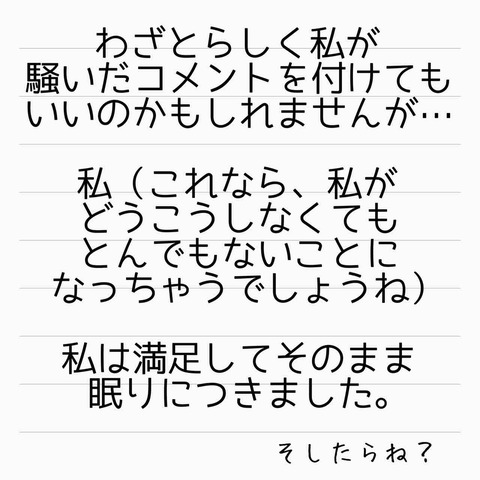 わざとらしく私が
騒いだコメントを付けても
いいのかもしれませんが…
私（これなら、私が
どうこうしなくても
とんでもないことに
なっちゃうでしょうね）
私は満足してそのまま
眠りにつきました。
そしたらね？